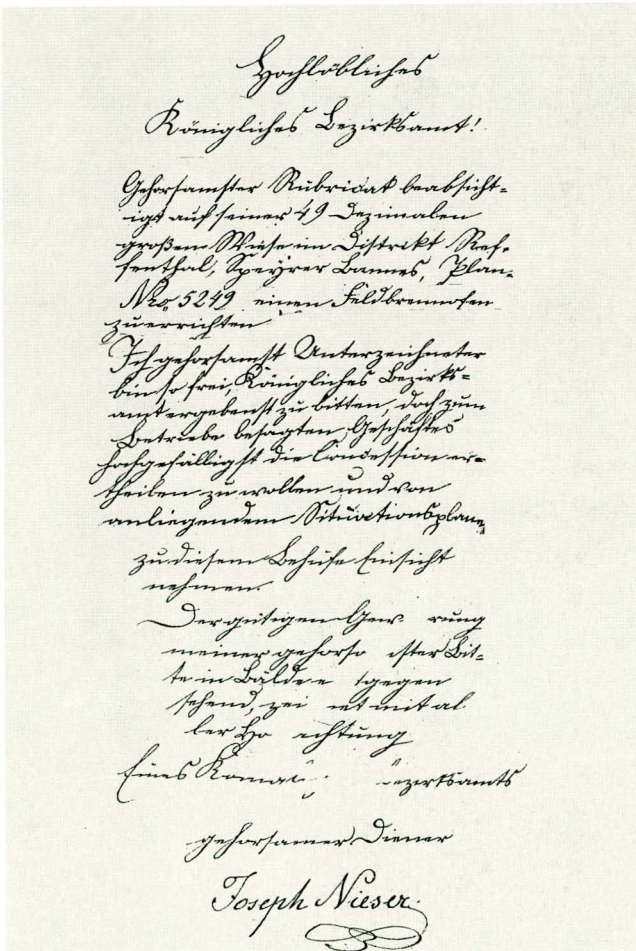 Hochlöbliches
Königliches Bezirksamt!
Gehorsamster Rubricat beabsicht-
igt auf seiner 49 Dezimalen
großem Wiese im Distrikt Ref-
fenthal, Speyrer Bannes, Plan-
Nro. 5249 einen Feldbrennofen
zu errichten
Ich gehorsamst Unterzeichneter
bin so frei, Königliches Bezirks-
amt ergebenst zu bitten, doch zum
Betriebe besagten Geschäftes
hochgefälligst die Concession er-
theilen zu wollen und von
anliegendem Situationsplane
zu diesem Behufe Einsicht
nehmen.
Der gütigen Gew rung
meiner gehorsa ster Bit-
te in Bälde e tgegen
sehend, zei et mit al
ler Ho achtung
Eines ezirksamts
gehorsamer Diener
Joseph Nieser.